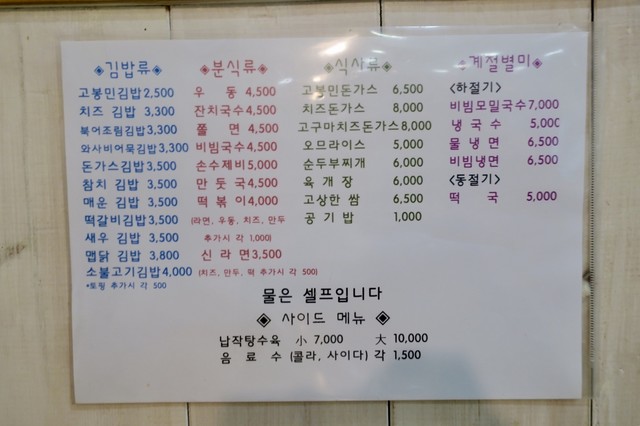 ◈김밥류◈
고봉민김밥2,500
치즈 김밥 3,300
북어조림김밥3,300
와사비어묵김밥3,300
돈가스김밥 3,500
참치 김밥 3,500
매운 김밥 3,500
떡갈비김밥 3,500
새우 김밥 3,500
맵닭 김밥 3,800
소불고기김밥4,000
*토핑 추가시 각 500
◈분식류◈
우 동 4,500
잔치국수4,500
쫄 면 4,500
비빔국수4,500
손수제비5,000
만 둣 국4,500
떡 볶 이4,000
(라면, 우동, 치즈, 만두
추가시 각 1,000)
신 라 면3,500
(치즈, 만두, 떡 추가시 각 500)
◈식사류◈
고봉민돈가스 6,500
치즈돈가스 8,000
고구마치즈돈가스8,000
오므라이스 5,000
순두부찌개 6,000
육 개 장 6,000
고상한 쌈 6,500
공 기 밥 1,000
◈계절별미◈
<하절기>
비빔모밀국수7,000
냉 국 수 5,000
물 냉 면 6,500
비빔냉면 6,500
<동절기>
떡 국 5,000
물은 셀프입니다
◈ 사이드 메뉴 ◈
납작탕수육 小 7,000 大 10,000
음 료 수 (콜라, 사이다) 각 1,500